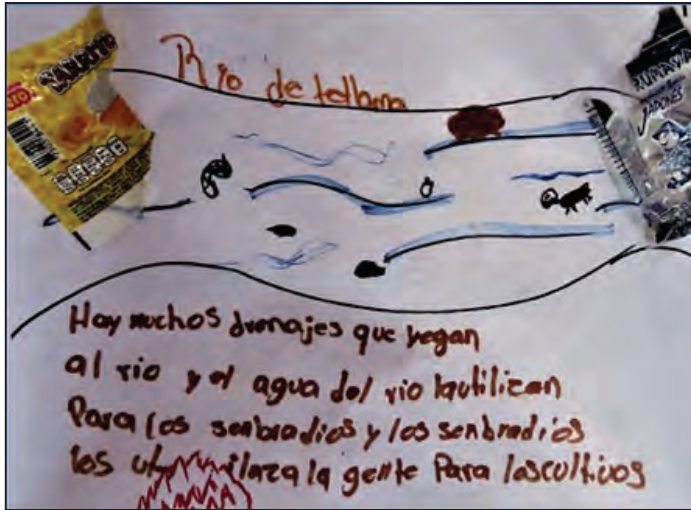 Rio de tellama
SABRITO
JAPONES
Hay muchos drenajes que yegan
al rio y el agua del rio lautilizan
Para los senbradios y los senbradios
los ut ilaza la gente Para loscultivos